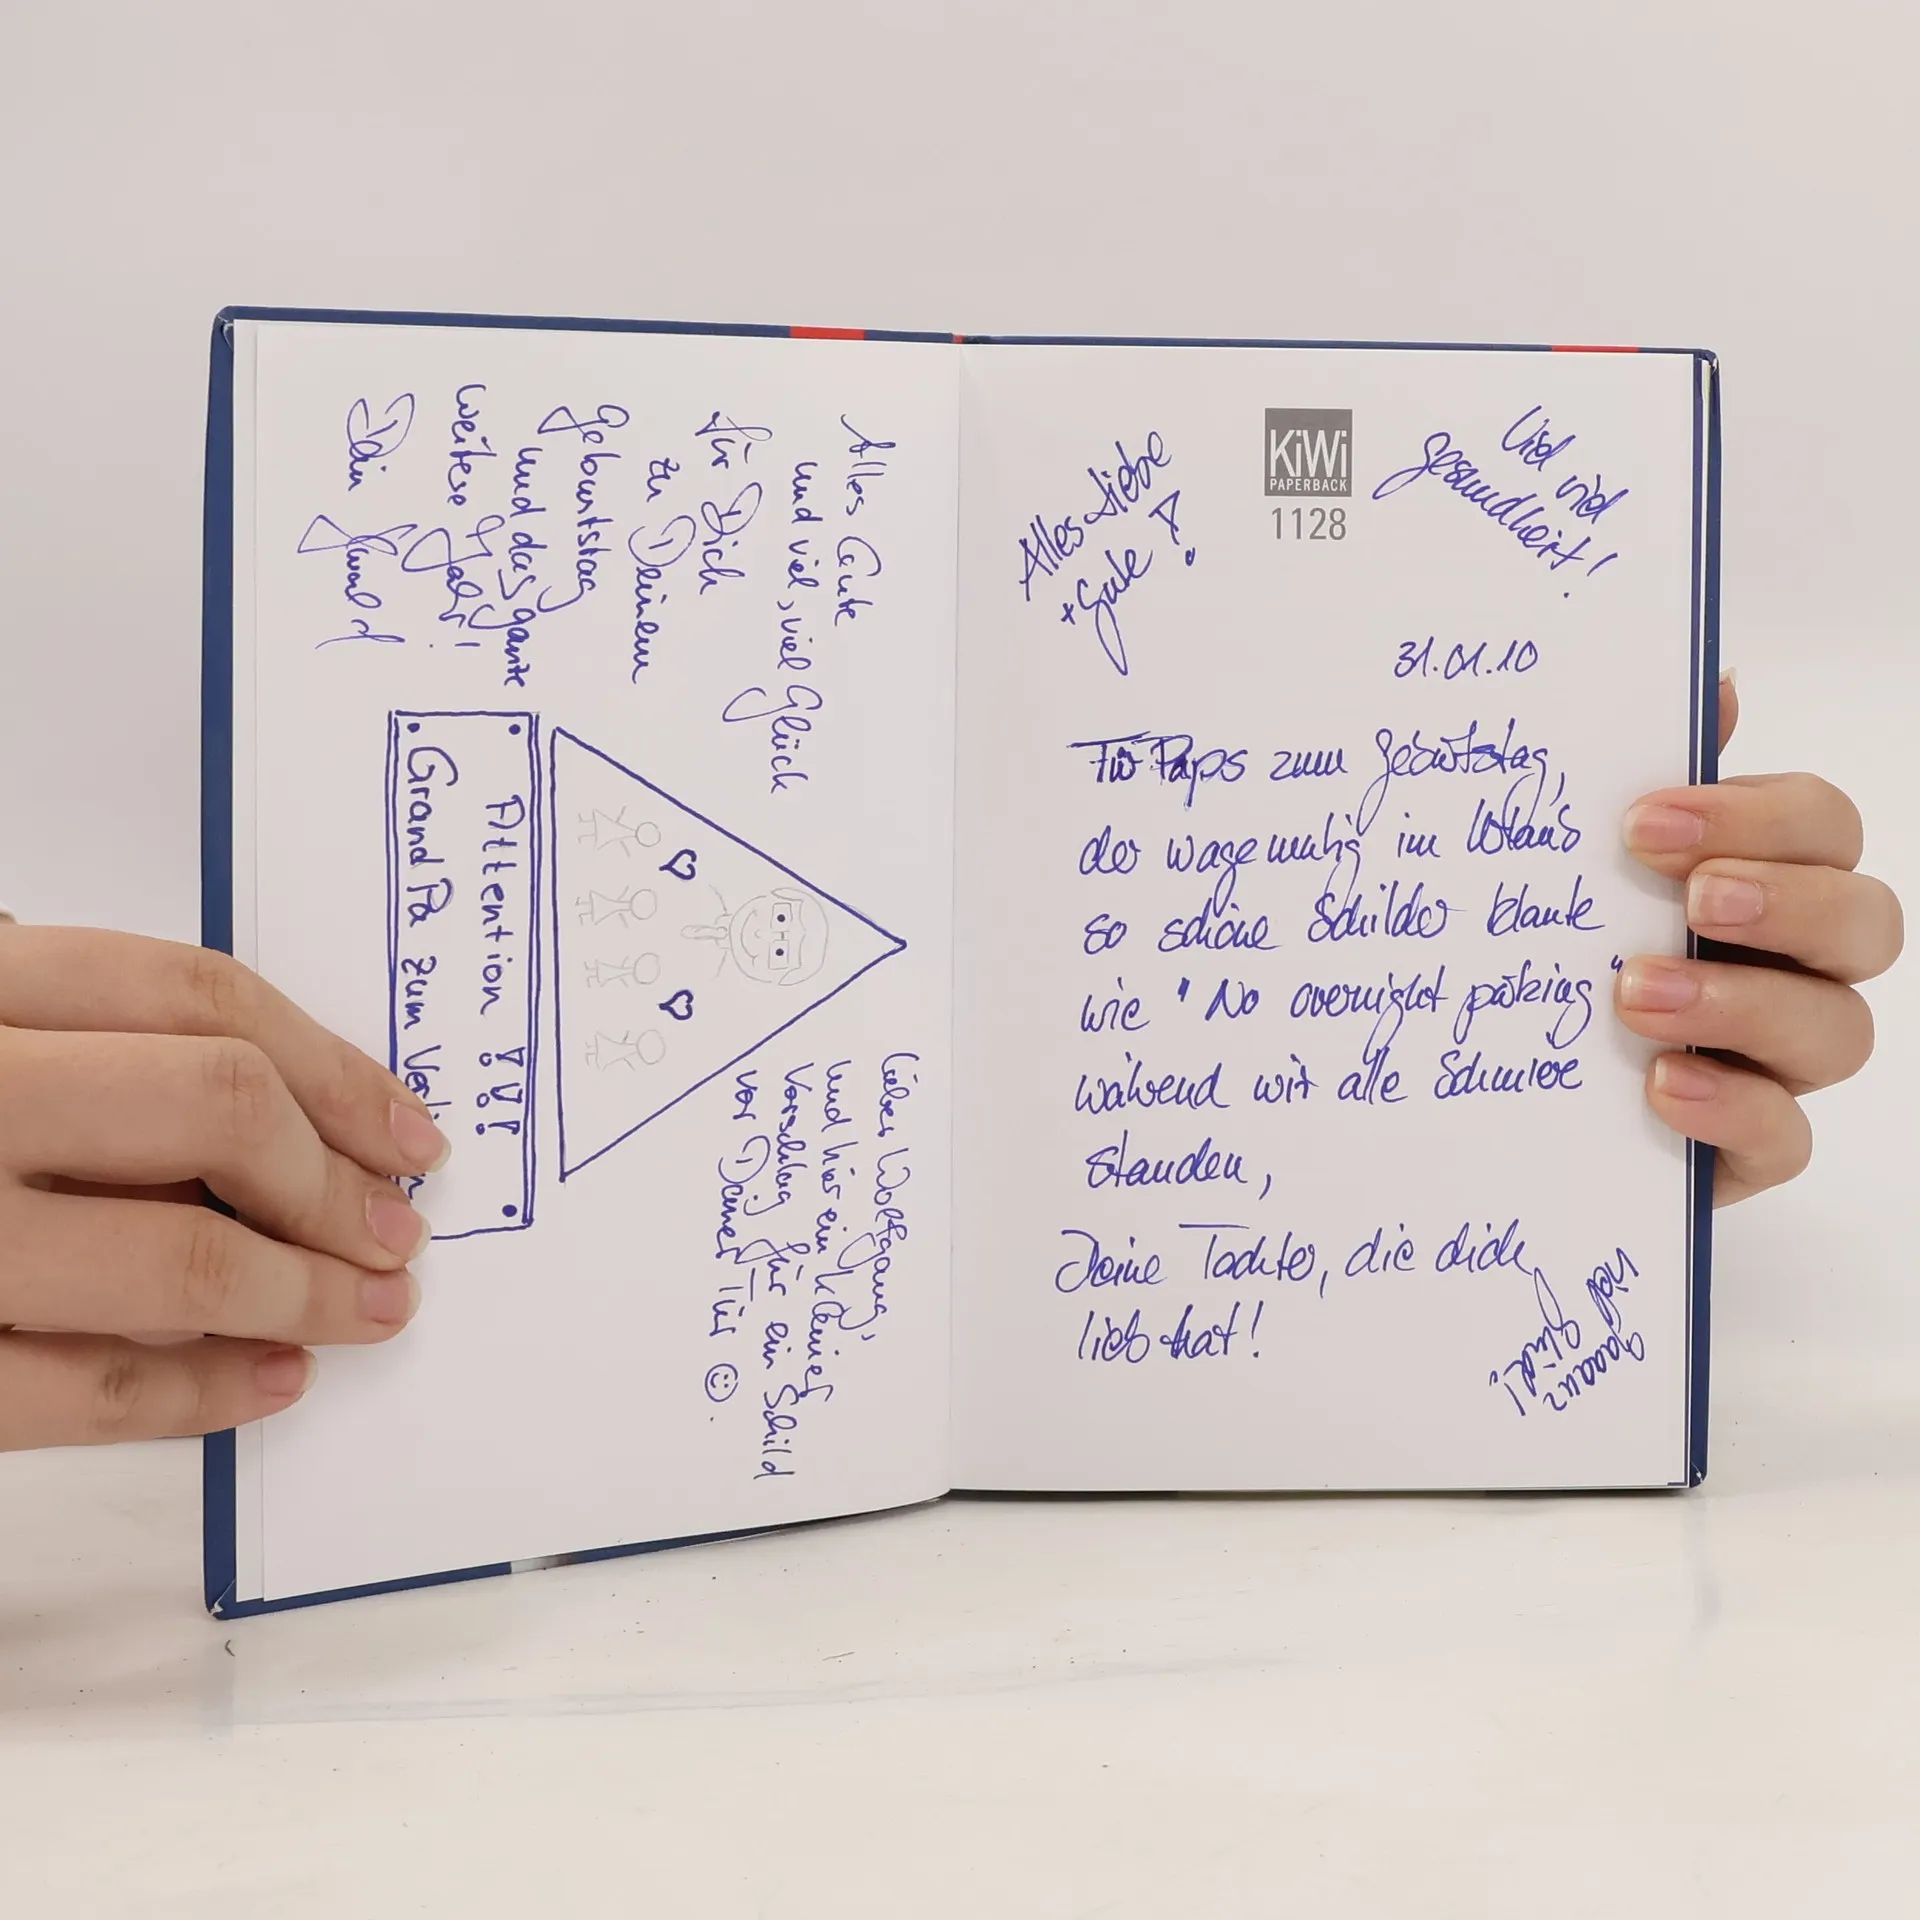 Alles Gute
und viel, viel Glück
für Dich
zu Deinem
Geburtstag
und das ganze
weitere Jahr!
Dein
Lieber Wolfgang,
und hier ein kleiner
Vorschlag für ein Schild
vor Deiner Tür ☺.
Attention !!!
GrandPa zum
KiWi
PAPERBACK
1128
Alles Liebe
+ Gute!
Viel viel
Gesundheit!
31.01.10
Für Paps zum Geburtstag,
der wagemutig im Urlaub
so schöne Schilder klaute
wie "No overnight parking"
während wir alle Schmiere
standen,
Deine Tochter, die dich
lieb hat!
Viel gaaanz
Glück!